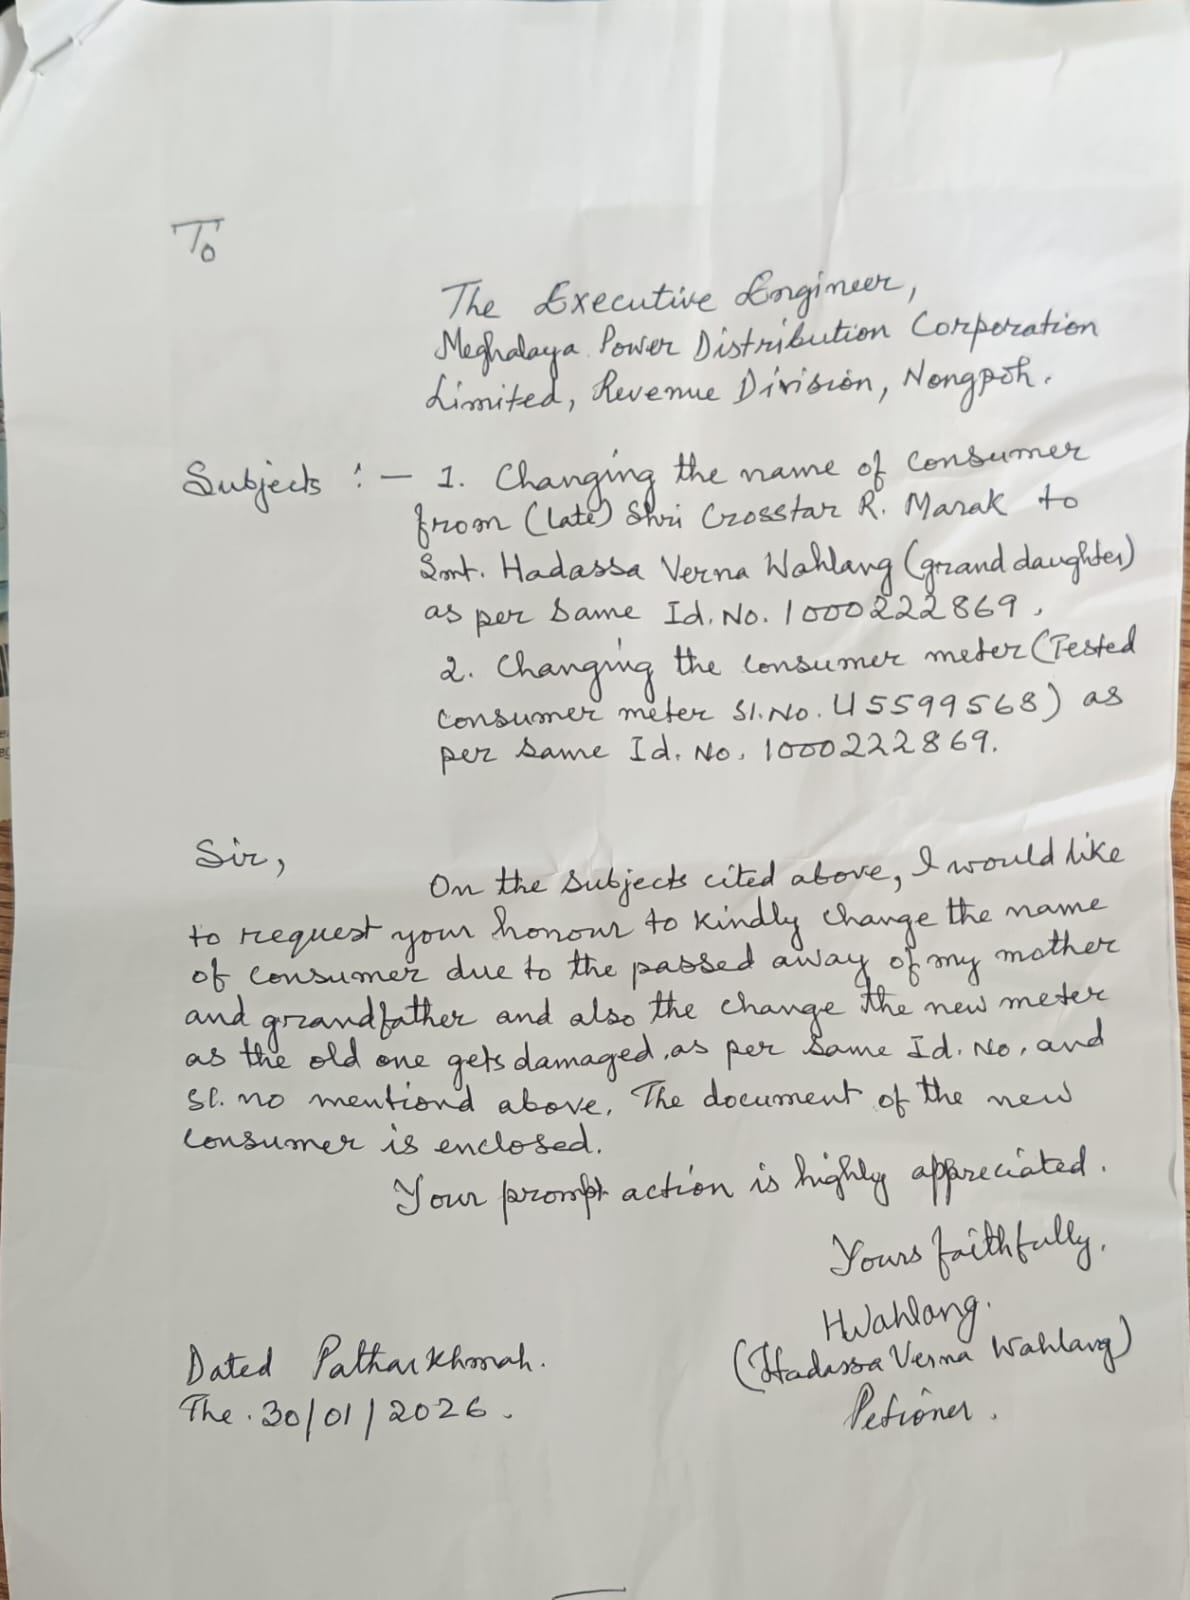 To
The Executive Engineer,
Meghalaya Power Distribution Corporation
Limited, Revenue Division, Nongpoh.
Subjects :- 1. Changing the name of consumer
from (late) Shri Crosstar R. Marak to
Smt. Hadassa Verna Wahlang (grand daughter)
as per same Id. No. 1000222869.
2. Changing the consumer meter (Tested
consumer meter Sl. No. U5599568) as
per same Id. No. 1000222869.
Sir,
On the subjects cited above, I would like
to request your honour to kindly change the name
of consumer due to the passed away of my mother
and grandfather and also the change the new meter
as the old one gets damaged, as per same Id. No. and
Sl. no mentiond above. The document of the new
consumer is enclosed.
Your prompt action is highly appreciated.
Yours faithfully,
HWahlang.
(Hadassa Verna Wahlang)
Petioner.
Dated Patharkhmah.
The. 30/01/2026.